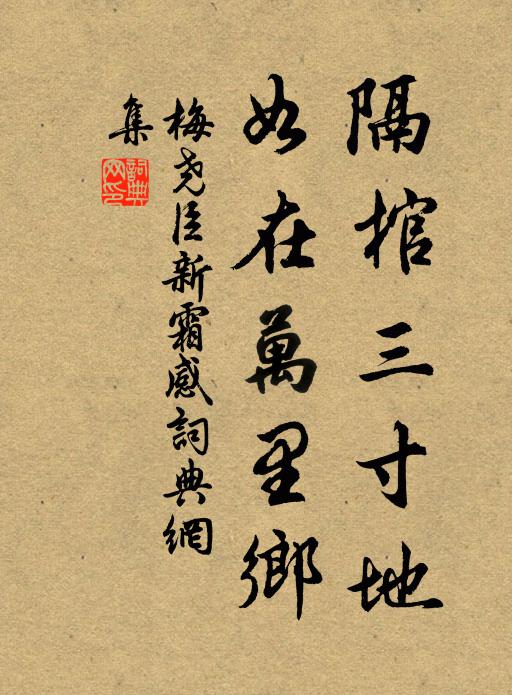 隔棺三寸地
如在萬里鄉
梅尧臣新霜感詞典網
集
詞典网印